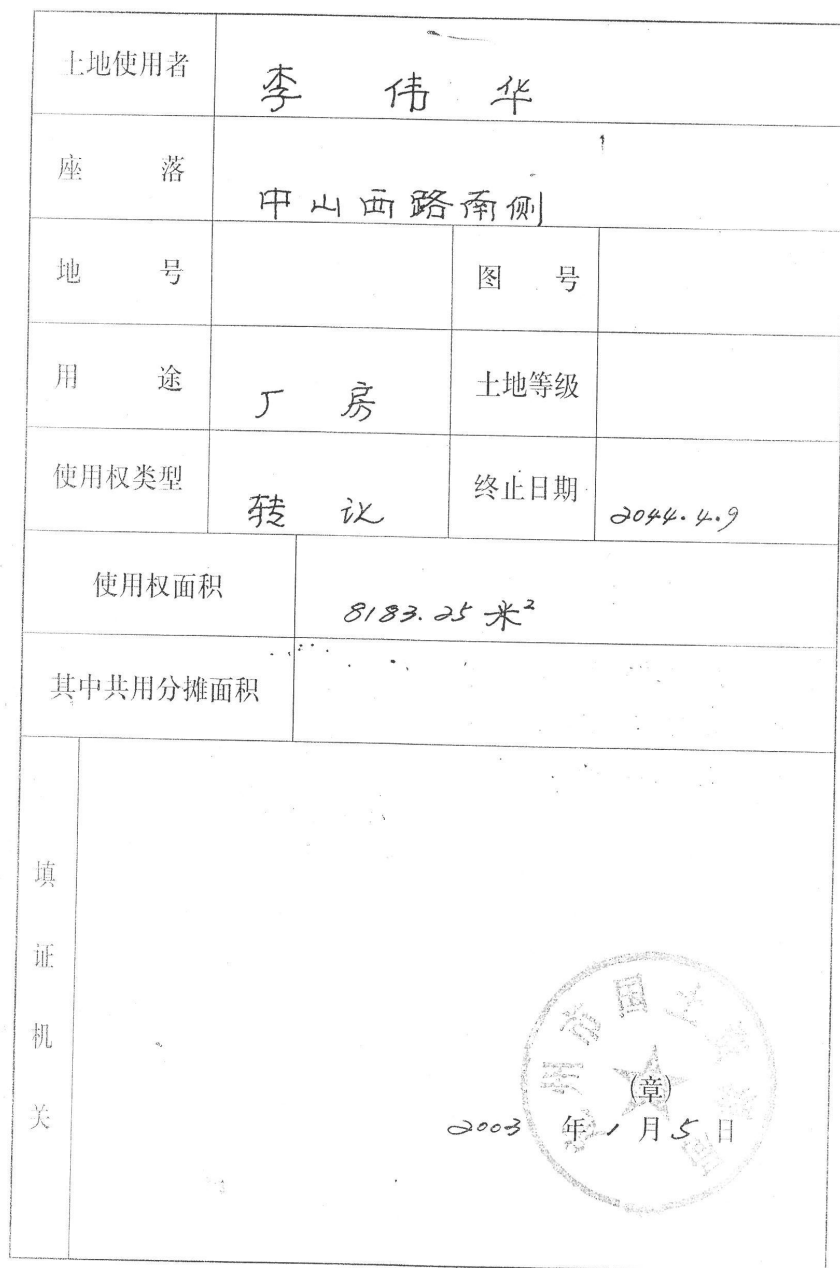 土地使用者 李伟华
座落 中山西路南侧
地号 图号
用途 厂房 土地等级
使用权类型 转让 终止日期 2044.4.9
使用权面积 8183.25米²
其中共用分摊面积
填证机关
州市国土资源局
(章)
2003年1月5日